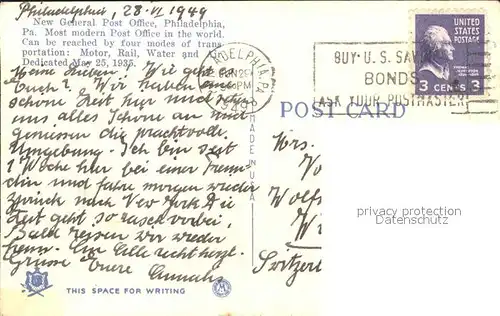 Philadelphia, 28. VI 1949
New General Post Office, Philadelphia,
Pa. Most modern Post Office in the world.
Can be reached by four modes of trans-
portation: Motor, Rail, Water and Air.
Dedicated May 25, 1935.
Meine Lieben! Wie geht es
Euch? Wir haben eine
schöne Zeit hier und
uns alles Schöne an und
geniessen die prachtvolle
Umgebung. Ich bin seit
1 Woche hier bei einer Freun-
din und fahre morgen wieder
zurück nach New York. Die
Zeit geht so rasch vorbei,
Bald reisen wir wieder
heim. Ihr Alle recht herzl.
Grüsse Euere Annalis
THIS SPACE FOR WRITING
MADE IN U.S.A.
PHILADELPHIA, PA.
JUN 29
PM
1949
BUY U.S. SAVINGS
BONDS
ASK YOUR POSTMASTER
UNITED
STATES
POSTAGE
3 CENTS 3
POST CARD
Mrs.
Vo
Wolf
Wi
Switzerl
privacy protection
Datenschutz